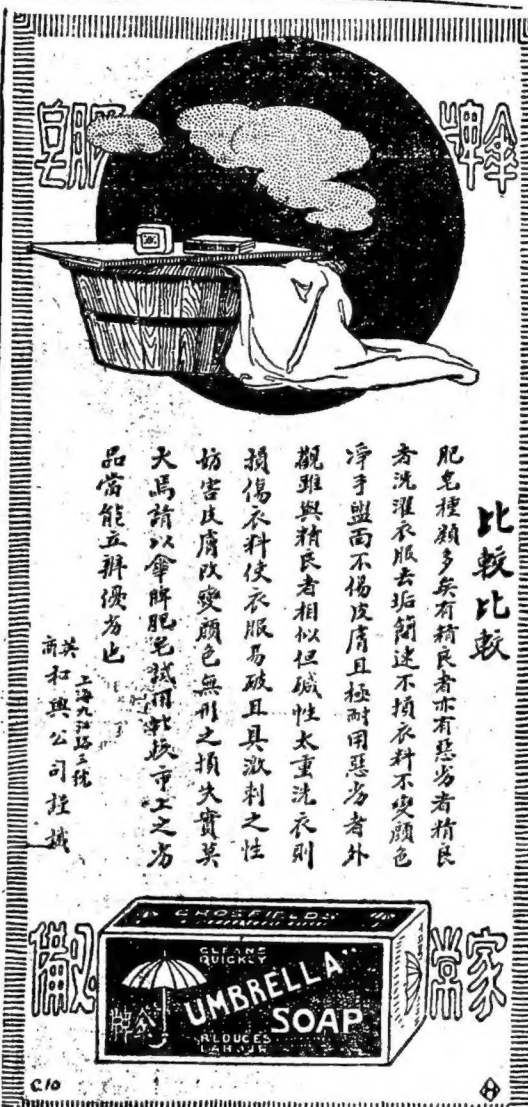 傘牌
肥皂
比較比較
肥皂種類多矣有精良者亦有惡劣者精良
者洗濯衣服去垢簡速不損衣料不變顏色
淨手盥面不傷皮膚且極耐用惡劣者外
觀雖與精良者相似但碱性太重洗衣則
損傷衣料使衣服易破且具激刺之性
妨害皮膚改變顏色無形之損失實莫
大焉請以傘牌肥皂試用較坊市上之劣
品當能立辨優劣也
英商
上海九江路三號
和興公司謹識
家常
必備
CROSFIELDS
CLEANS
QUICKLY
"UMBRELLA"
SOAP
傘牌
REDUCES
LABOUR
C.10